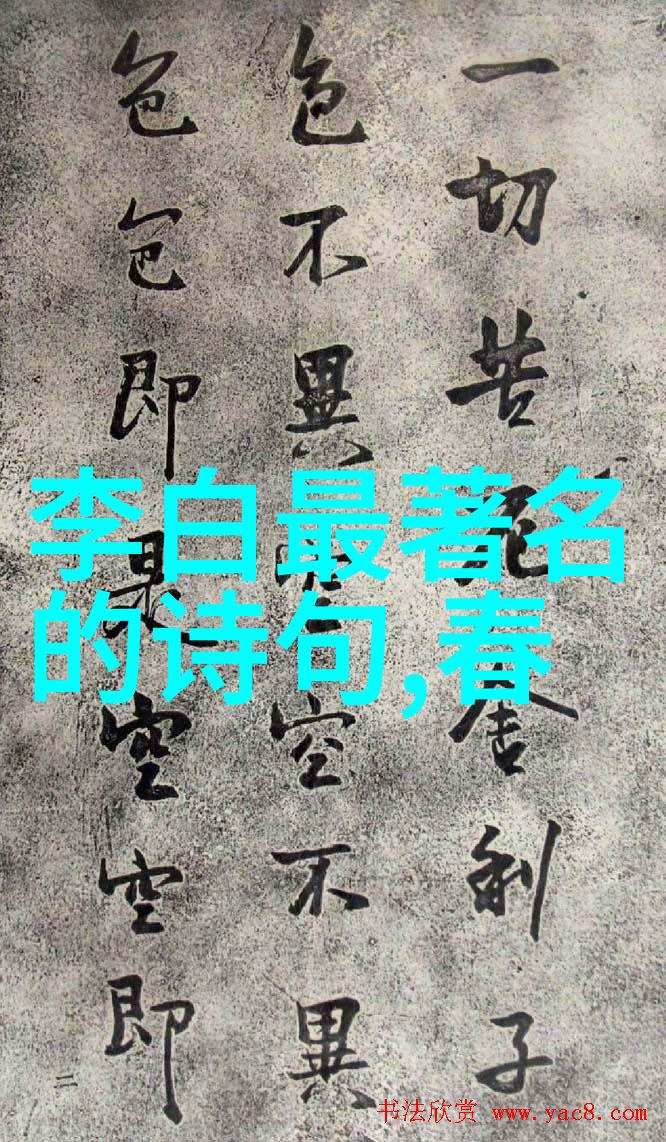 一切苦厄舍利子
色不異空空不異
色色即是空空即
二
李白最著名
的诗句,春
书法欣赏 www.yac8.com